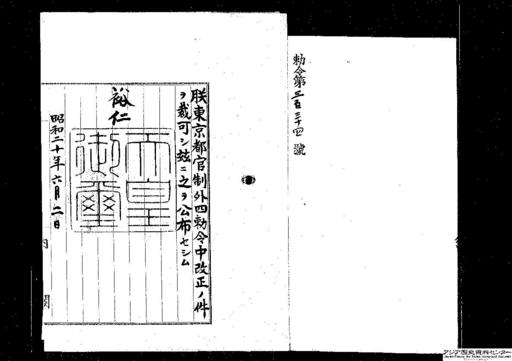 勅令第三百三十四號
朕東京都官制外四勅令中改正ノ件
ヲ裁可シ玆ニ之ヲ公布セシム
裕仁
天皇
御璽
昭和二十年六月二日
内
閣
アジア歴史資料センター